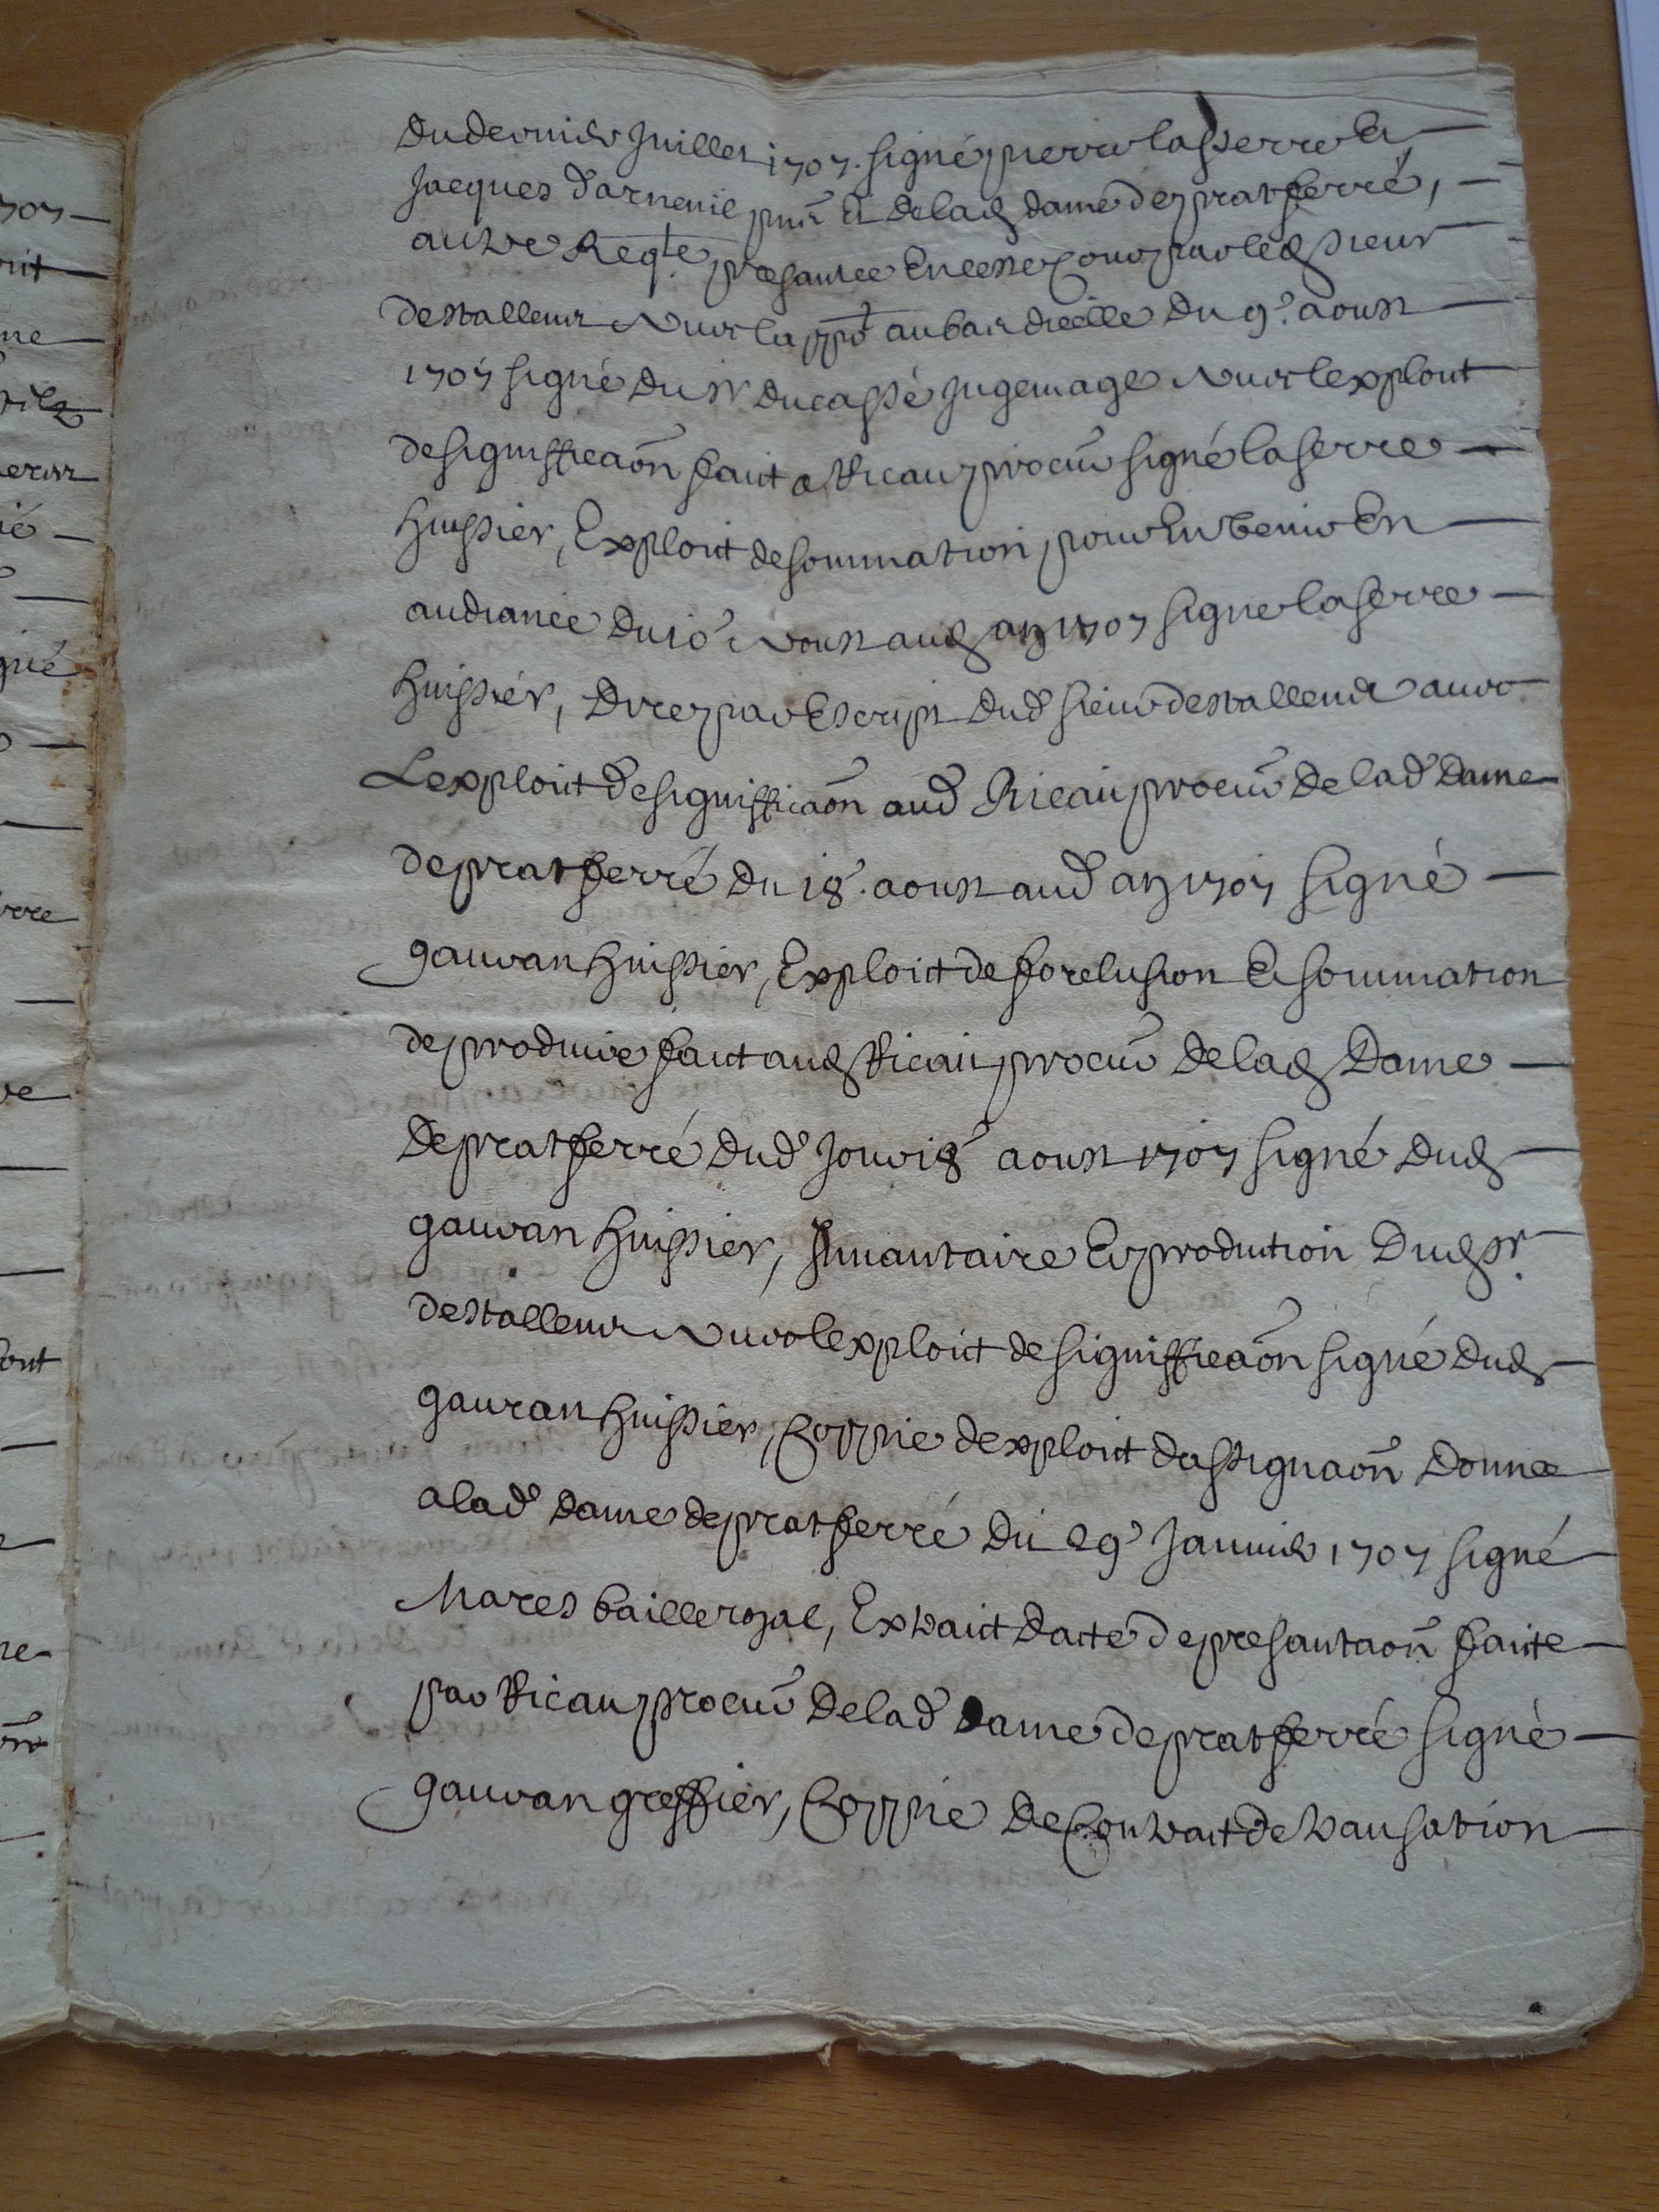 du dernier Juillet 1707. signé pierre lasserre Et
Jacques d'arnenie pnt Et de lad dame de pratferré,
autre Reqte presantee En ceste Cour par led sieur
destalleur Avec la ppo au bas dicelle du 9e. aoust
1707 signé du sr ducassé Jugemage Avec lexploit
de signifficaôn fait a Ricau procur signé laserre
huissier, Exploit de sommation pour En venir En
audiance du 10e Aoust aud an 1707 signe laserre
huissier, dire par Escript dud sieur destalleur avec
Lexploit de signifficaôn aud Ricau procur de lad dame
de pratferré du 18e. aoust aud an 1707 signé
gauran huissier, Exploit de forclusion Et sommation
de produire fait aud Ricau procur de lad dame
de pratferré dud Jour 18e aoust 1707 signé dud
gauran huissier, Inuantaire Et production dud sr.
destalleur Avec lexploit de signifficaôn signé dud
gauran huissier, Coppie dexploit dassignaôn donnee
a lad dame de pratferré du 29e Januier 1707 signé
Mares baille royal, Extrait dacte de presantaôn faite
par Ricau procur de lad dame de pratferré signé
gauran greffier, Coppie de Contrait de transation
707